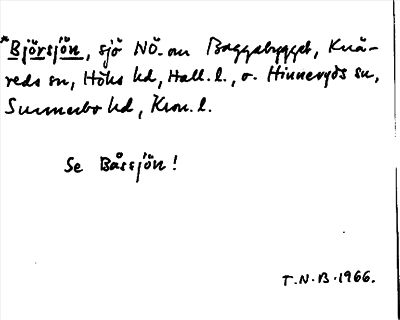 *Björsjön, sjö NÖ. om Baggabygget, Knä-
reds sn, Höks hd, Hall. l., o. Hinneryds sn,
Sunnerbo hd, Kron. l.
Se Bårsjön!
T.N.B. 1966.